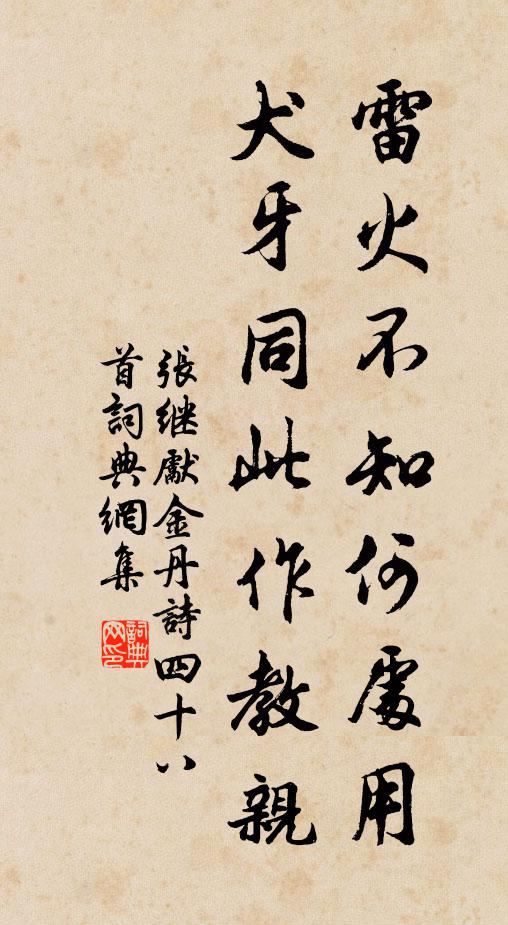 雷火不知何處用
犬牙同此作教親
張继獻金丹詩四十八
首詞典網集
詞典
网印